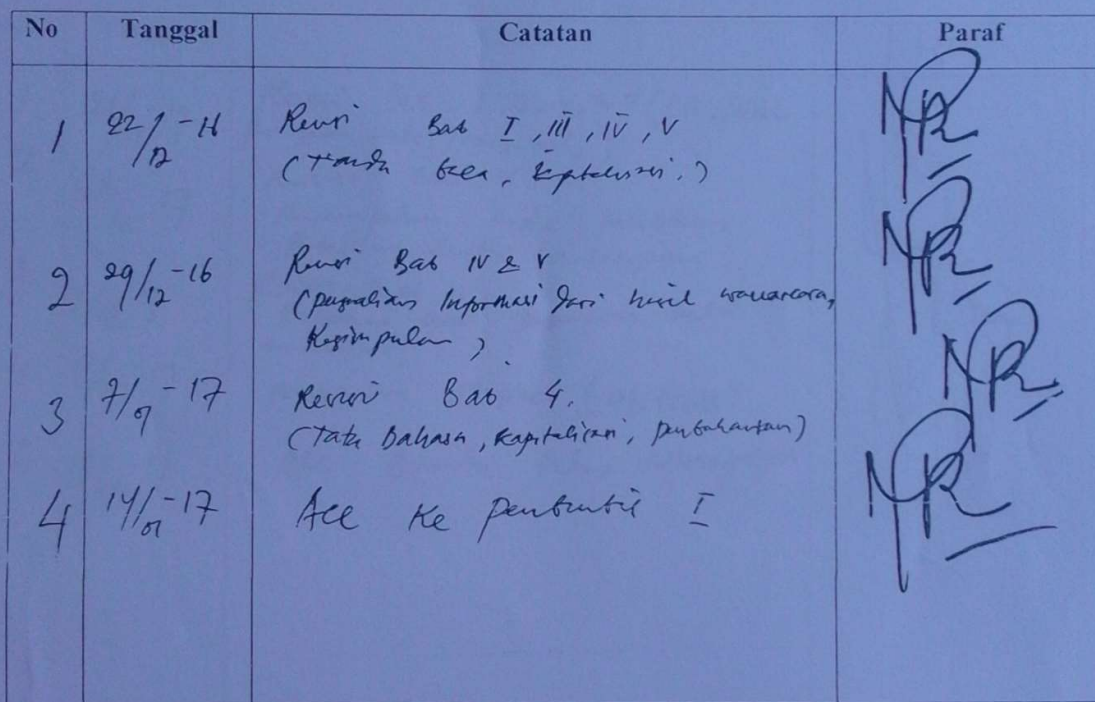 No Tanggal Catatan Paraf
1 22/12-16 Revisi Bab I, III, IV, V
(Tanda baca, kapitalisasi,)
2 29/12-16 Revisi Bab IV & V
(penggalian Informasi dari hasil wawancara,
Kesimpulan)
3 7/01-17 Revisi Bab 4.
(Tata Bahasa, Kapitalisasi, pembahasan)
4 14/01-17 Acc Ke pembimbing I